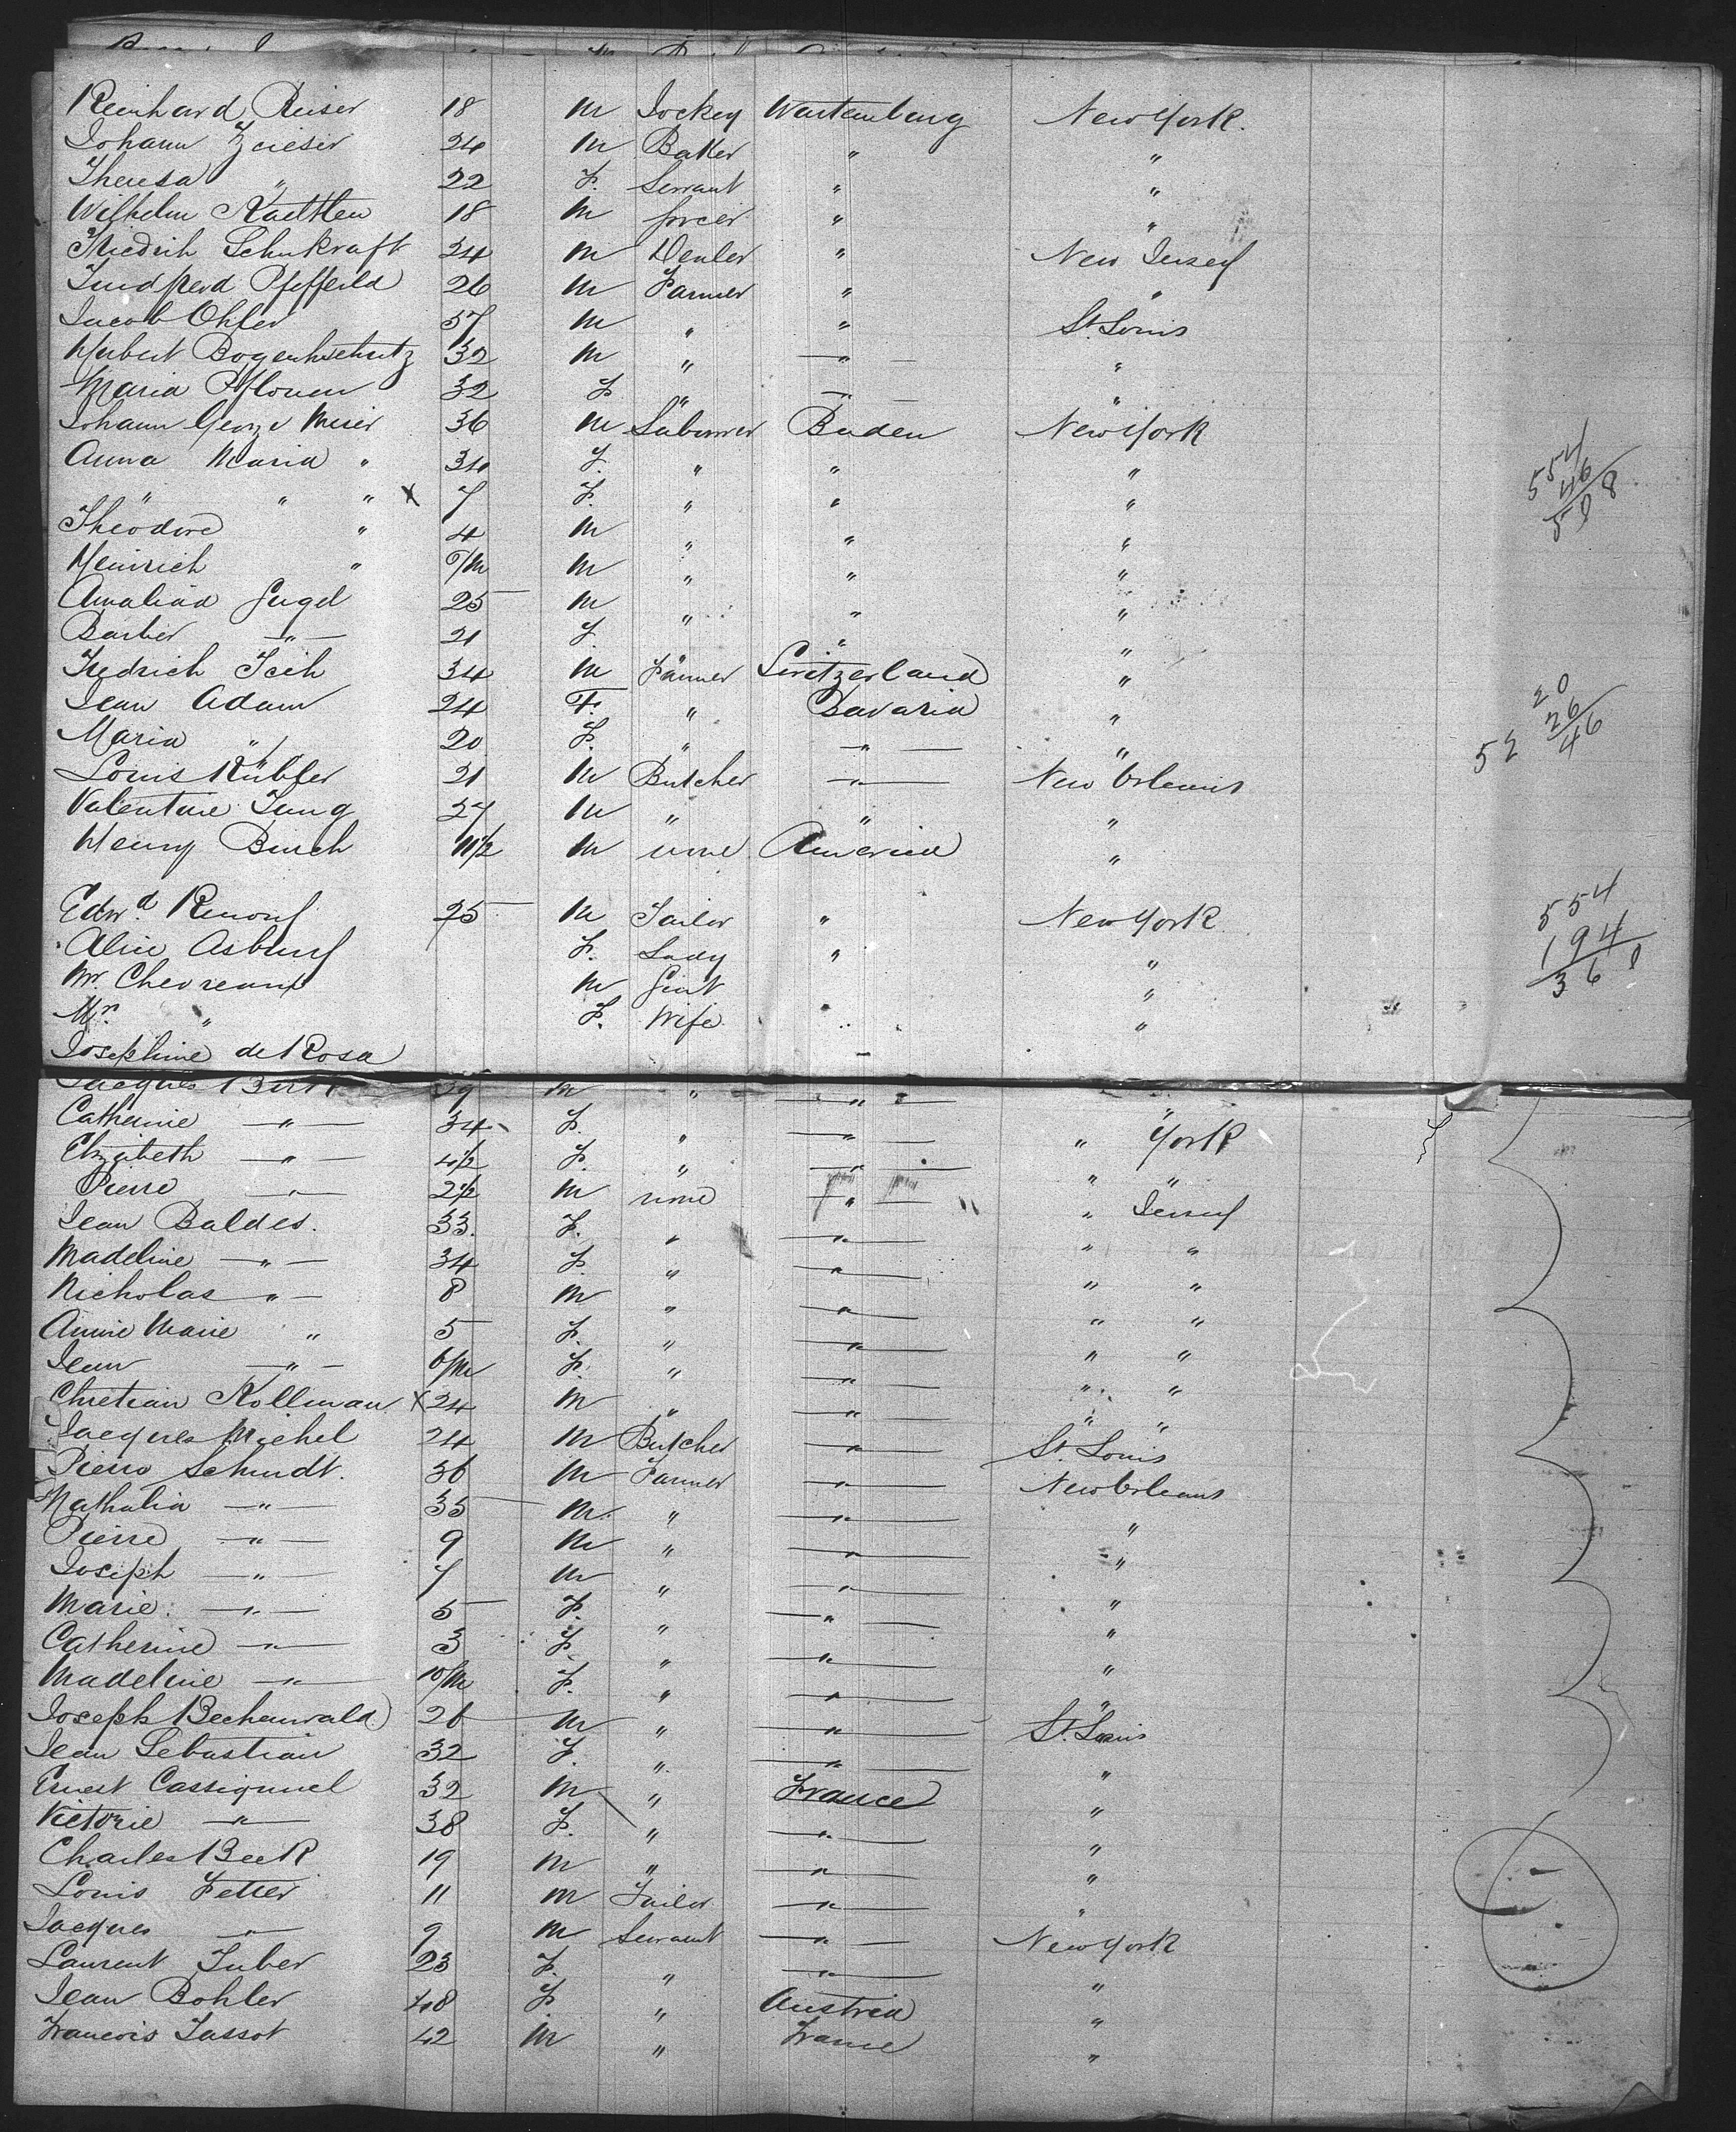 Reinhard Reiser 18 M Jockey Wurtemburg New York.
Johann Zeieser 24 M Baker " "
Theresa " 22 F. Servant " "
Wilhelm 18 M " "
Friedrich Schukraft 24 M Dealer " New Jersey
Pfefferld 26 M Farmer " "
Jacob Ohler 57 M " " St Louis
Herbert 32 M " " "
Maria 32 F " " "
Johann George Meier 36 M Labourer Baden New York
Anna Maria " 34 F. " " "
" " " x 7 F. " " "
Theodore " 4 M " " "
Heinrich " M " " "
Amaliaa Gugel 25 M " " "
Barbier " 21 F. " " "
Fredrich 34 M Farmer Switzerland "
Jean Adam 24 F. " Bavaria "
Maria " 20 F. " " "
Louis Kübler 21 M Butcher " New Orleans
Valentine Jung 27 M " " "
Henry Birch 11½ M none America "
Edwd. Renouf 25 M Tailor " New York
Alice Asbury F. Lady " "
Mr. Chevreaux M Gent "
Mrs. " F. Wife " "
Josephine de Rosa
554
46
508
20
26
46
52
554
194
360
Jacques Burk 39 M " " "
Catherine " 34 F. " " " York
Elizabeth " 4½ F. " " " "
Pierre " 2½ M none " " Jersey
Jean Baldes. 33. F. " " " "
Madeline " 34 F. " " " "
Nicholas " 8 M " " " "
Annie Marie " 5 F. " " " "
Jean " 6/M F. " " " "
Chretian Kollman x 24 M " " " "
Jacques Michel 24 M Butcher " St. Louis
Pierro Schmdt. 36 M Farmer " New Orleans
Nathalia " 35 M. " " "
Pierre " 9 M " " "
Joseph " 7 M " " "
Marie. " 5 F. " " "
Catherine " 3 F. " " "
Madeline " 10/M F. " " "
Joseph Bechenwald 26 M " " St. Louis
Jean Sebastian 32 F. " " "
Ernest Cassignuel 32 M " France "
Victorie " 38 F. " " "
Charles Beck 19 M " " "
Louis Fetter 11 M Tailor " "
Jacques " 9 M Servant " New York
Laurent Juber 23 F. " " "
Jean Bohler 48 F. " Austria "
Francois Tassot 42 M " France "